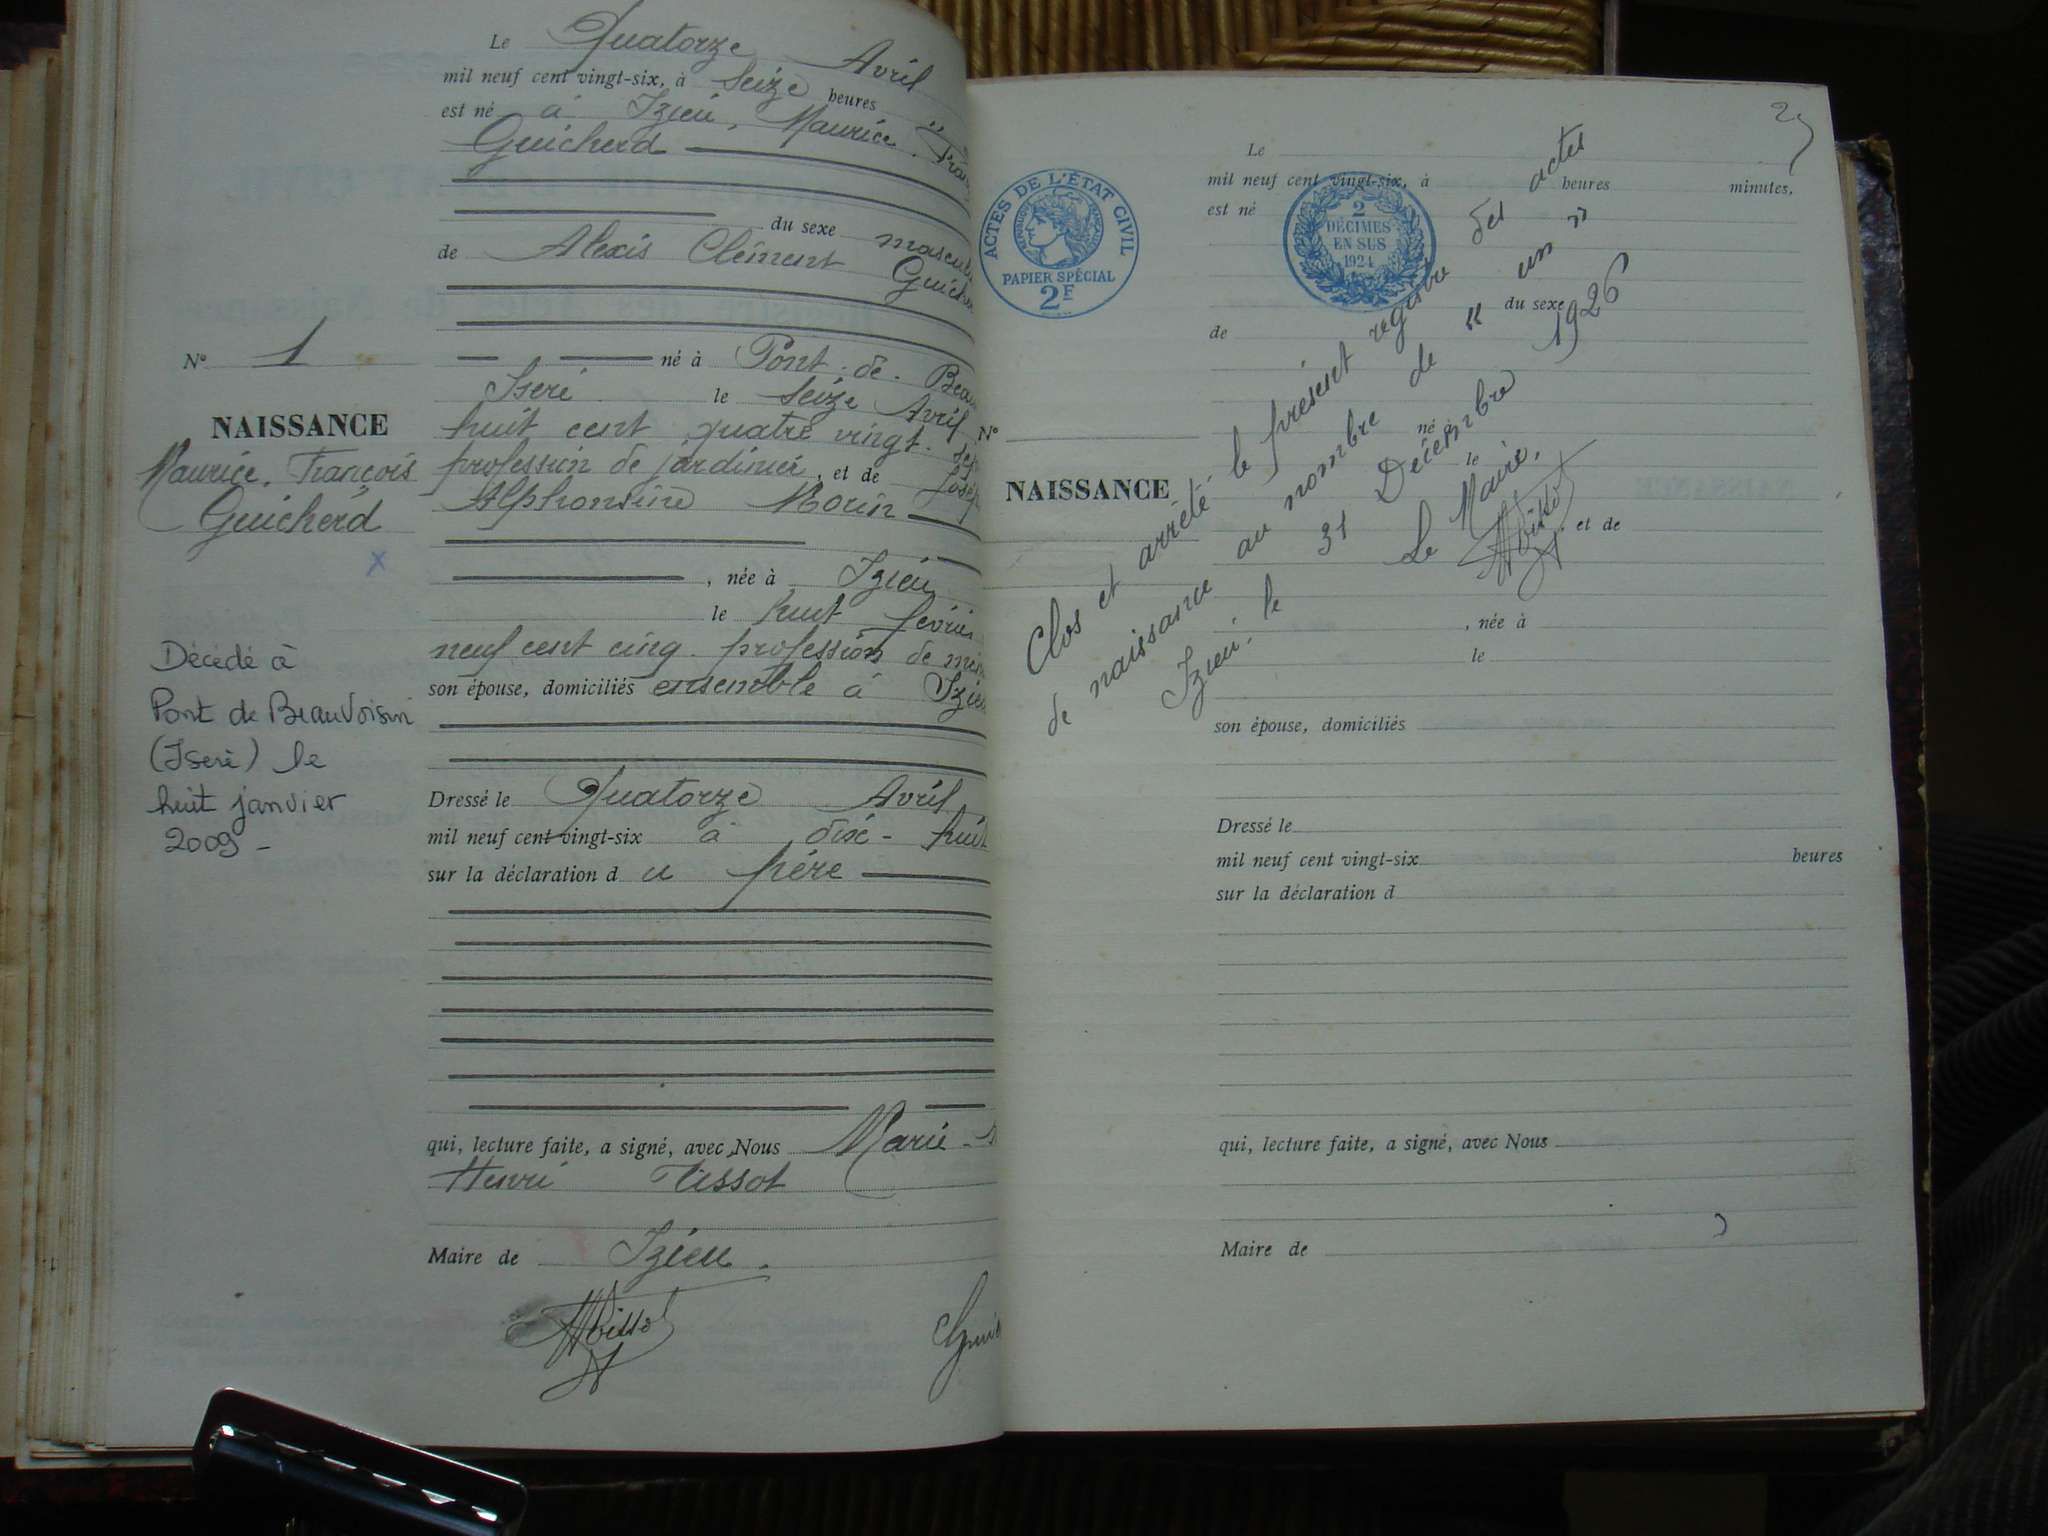 Le Quatorze Avril
mil neuf cent vingt-six, à Seize heures
est né à Izieu, Maurice, Fran
Guicherd
du sexe mascul
de Alexis Clément Guich
N° 1
né à Pont-de-Beau
Isère le Seize Avril
huit cent quatre vingt
NAISSANCE
Maurice, François
Guicherd
profession de jardinier, et de Josép
Alphonsine Morin
, née à Izieu
le huit février
neuf cent cinq profession de mén
son épouse, domiciliés ensemble à Izieu
Décédé à
Pont de Beauvoisin
(Isère) le
huit janvier
2009 -
Dressé le Quatorze Avril
mil neuf cent vingt-six à dix-huit
sur la déclaration d u père
qui, lecture faite, a signé, avec Nous Marie-
Henri Tissot
Maire de Izieu.
25
ACTES DE L'ÉTAT CIVIL
RÉPUBLIQUE FRANÇAISE
PAPIER SPÉCIAL
2F
2
DÉCIMES
EN SUS
1924
Le
mil neuf cent vingt-six, à heures minutes,
est né
du sexe
de
N°
né à
le
NAISSANCE
, et de
, née à
le
son épouse, domiciliés
Clos et arrêté le présent registre des actes
de naissance au nombre de « un »
Izieu, le 31 Décembre 1926
Le Maire,
Dressé le
mil neuf cent vingt-six heures
sur la déclaration d
qui, lecture faite, a signé, avec Nous
Maire de